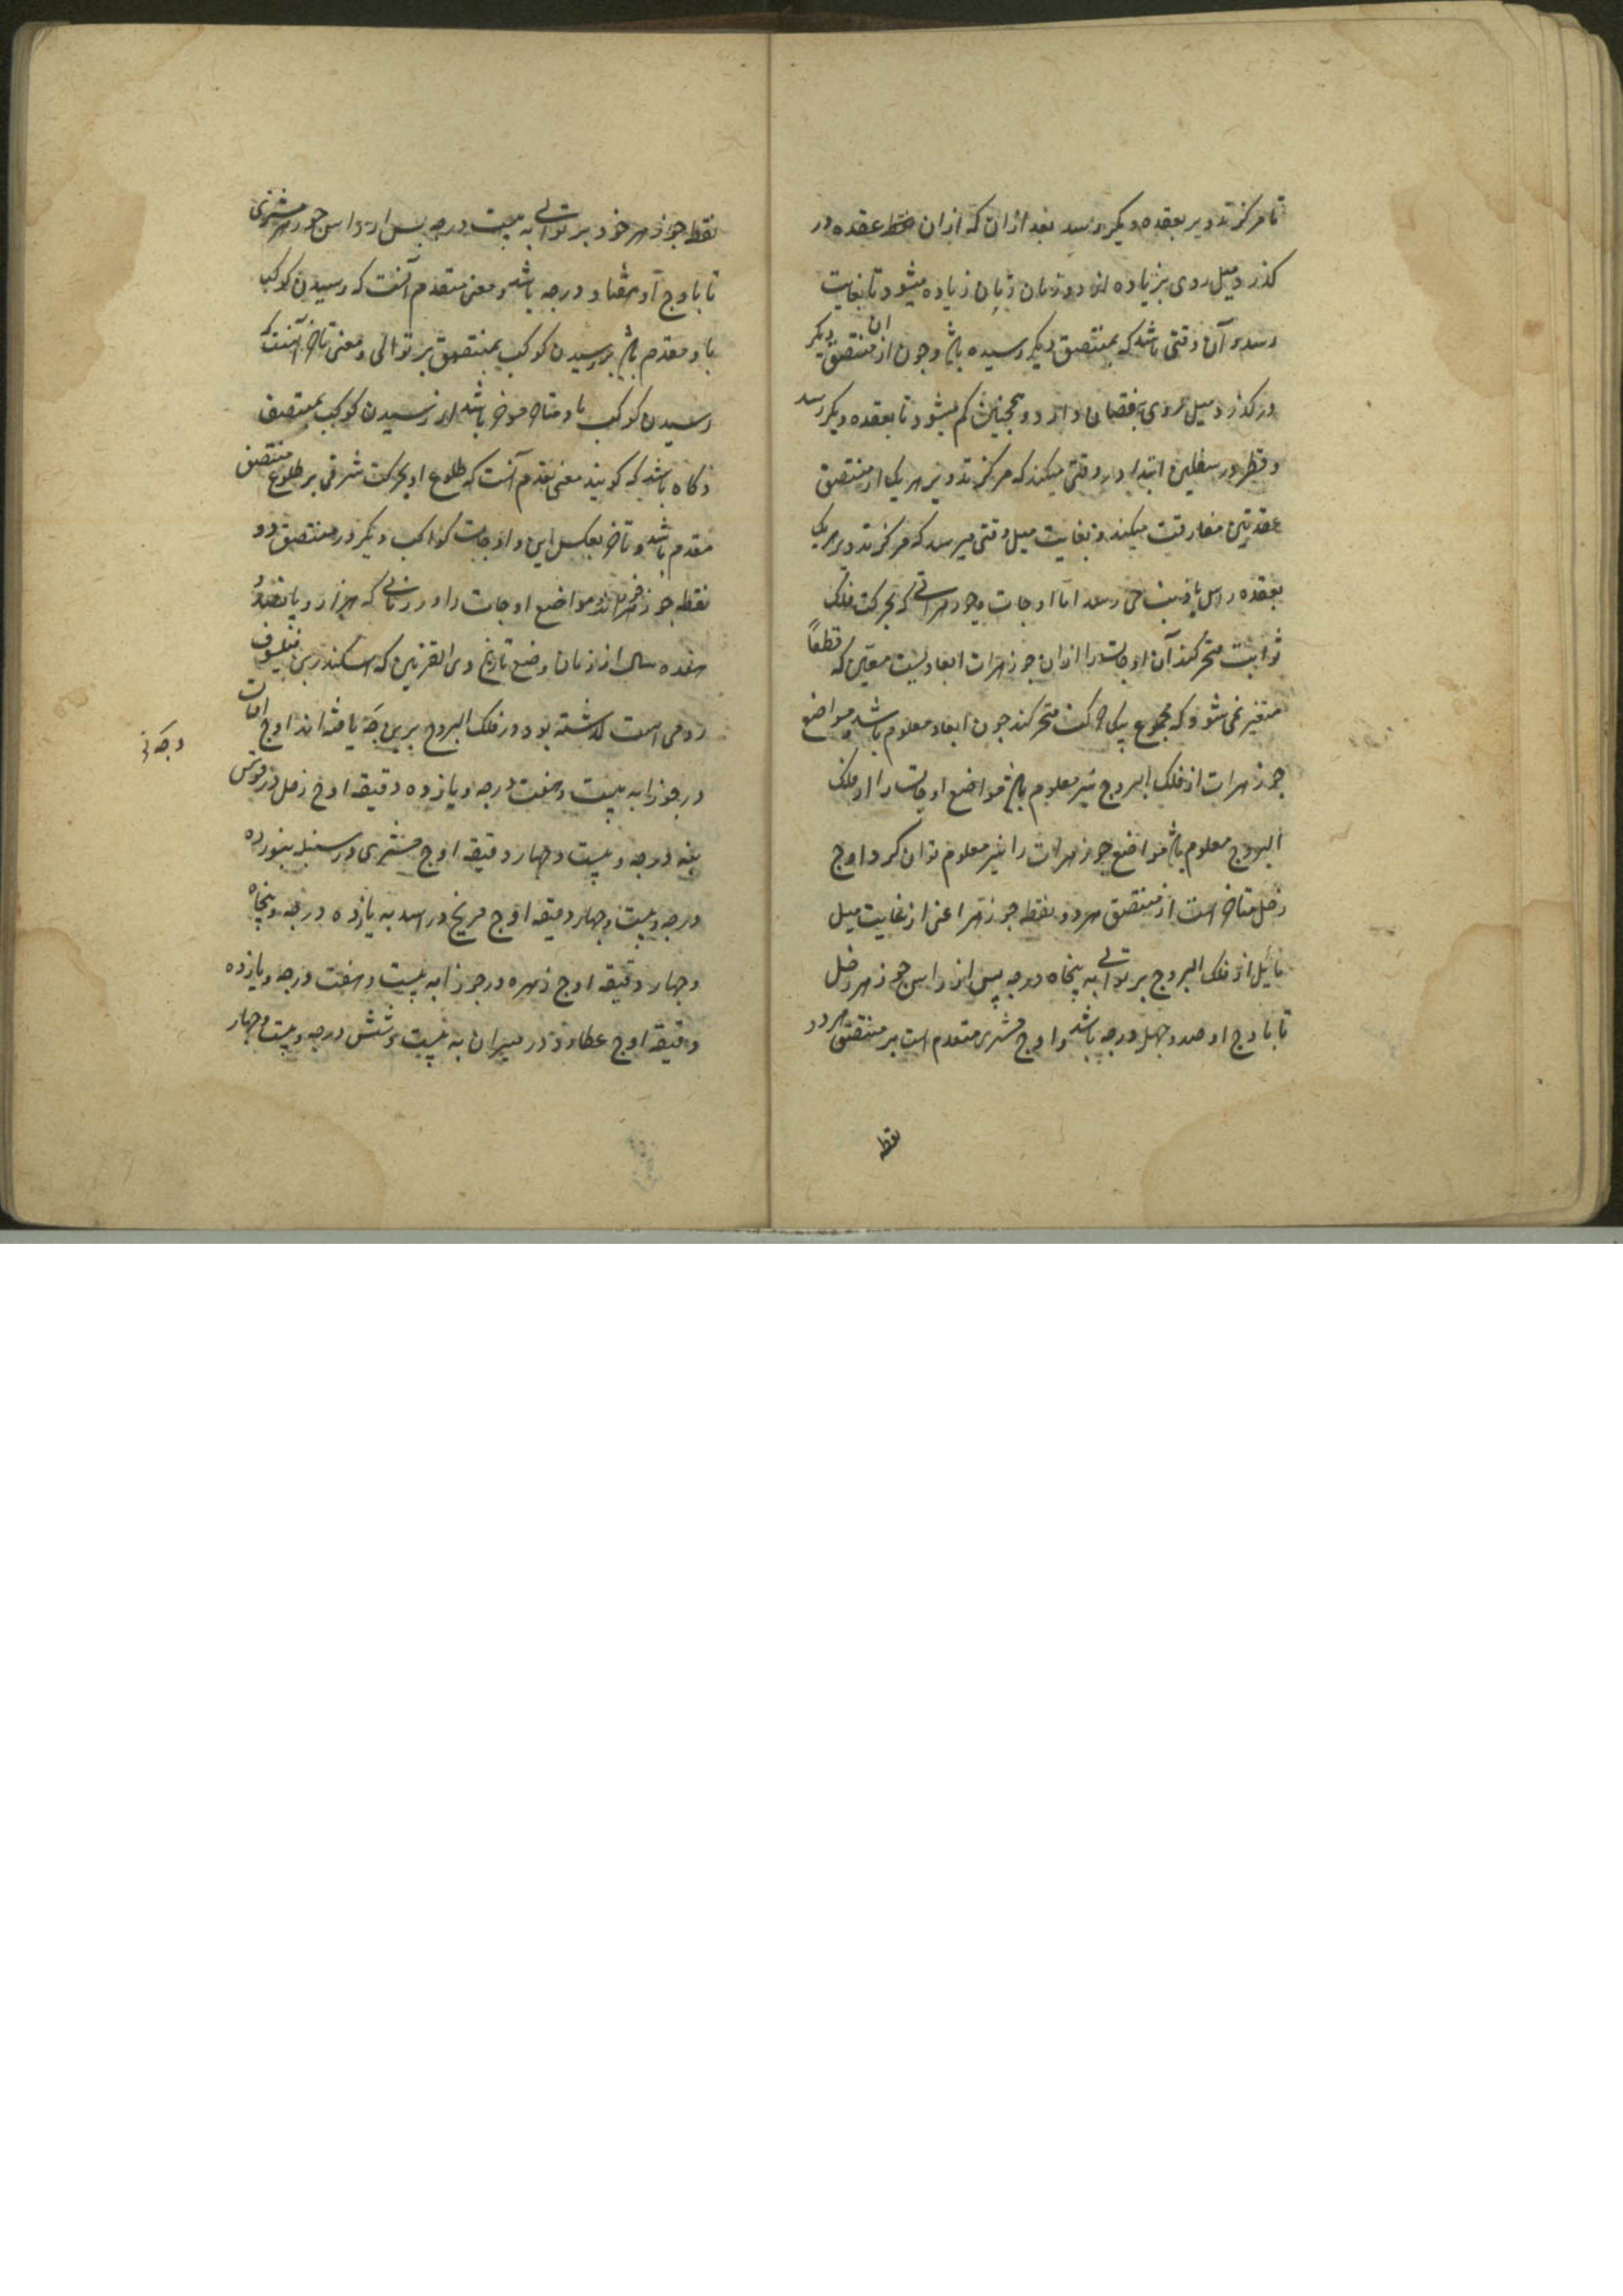 تا مرکز تدویر بعقده دیکر رسد بعد ازان که ازان عقده در
کذرد میل روی بزیاده نهد و زمان زمان زیاده میشود تا بغایت
رسد و آن وقتی باشد که بمنتصف دیکر رسیده باشد و چون از ان منتصف دیکر
در کذرد میل روی بنقصان دارد و همچنین کم میشود تا بعقده دیکر رسد
و قطر در سفلین ابتدا در وقتی میکند که مرکز تدویر هر یک از منتصف
عقدتین مفارقت میکند و بغایت میل وقتی میرسد که مرکز تدویر هر یک
بعقده راس یا ذنب می رسد اما اوجات و جوزهراتی که بحرکت فلک
ثوابت متحرکند آن اوجات را ازان جوزهرات ابعادیست معین که قطعاً
متغیر نمی شود که مجموع بیک حرکت متحرکند چون ابعاد معلوم باشد و مواضع
جوزهرات از فلک البروج نیز معلوم باشد مواضع اوجات را از فلک
البروج معلوم باشد مواضع جوزهرات را نیز معلوم توان کرد و اوج
زحل متاخر است از منتصف هر دو نقطه جوزهر اعنی از غایت میل
مایل از فلک البروج بر توالی به پنجاه درجه پس از راس جوزهر زحل
تا باوج او صد و چهل درجه باشد و اوج مشتری متقدم است بر منتصف هر دو
نقطه
نقطه جوزهر خود بر توالی به بیست درجه پس از راس جوزهر مشتری
تا باوج او هفتاد درجه باشد و معنی متقدم آنست که رسیدن کوکب
باو مقدم باشد بر رسیدن کوکب بمنتصف بر توالی و معنی تاخر آنست که
رسیدن کوکب باو متاخر موخر باشد از رسیدن کوکب بمنتصف
و کاه باشد که کویند معنی تقدم آنست که طلوع او بحرکت شرقی بر طلوع منتصف
مقدم باشد و تاخر بعکس این و اوجات کواکب دیکر در منتصف دو
نقطه جوزهراند و مواضع اوجات را در زمانی که هزار و پانصد و
هفده سال از زمان وضع تاریخ ذی القرنین که اسکندر بن فیلسوف
رومی است کذشته بود در فلک البروج برین وجه یافته اند اوج افتاب
وجه
در جوزا به بیست و هفت درجه و یازده دقیقه اوج زحل در قوس
بنه درجه و بیست و چهار دقیقه اوج مشتری در سنبله بنوزده
درجه و بیست و چهار دقیقه اوج مریخ در اسد به یازده درجه و پنجاه
و چهار دقیقه اوج زهره در جوزا به بیست و هفت درجه و یازده
دقیقه اوج عطارد در میزان به بیست و شش درجه و بیست و چهار